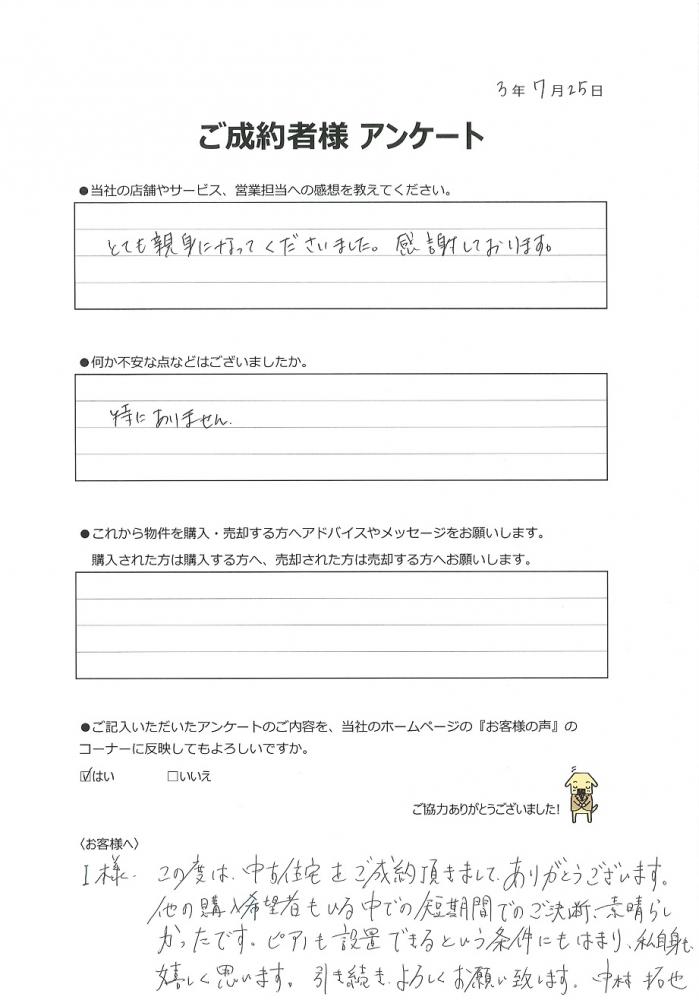 3年7月25日
ご成約者様 アンケート
●当社の店舗やサービス、営業担当への感想を教えてください。
とても親身になってくださいました。感謝しております。
●何か不安な点などはございましたか。
特にありません.
●これから物件を購入・売却する方へアドバイスやメッセージをお願いします。
購入された方は購入する方へ、売却された方は売却する方へお願いします。
●ご記入いただいたアンケートのご内容を、当社のホームページの『お客様の声』の
コーナーに反映してもよろしいですか。
☑はい □いいえ
ご協力ありがとうございました!
〈お客様へ〉
I様、この度は、中古住宅をご成約頂きまして、ありがとうございます。
他の購入希望者もいる中での短期間でのご決断、素晴らし
かったです。ピアノも設置できるという条件にもはまり、私自身も
嬉しく思います。引き続き、よろしくお願い致します。中村 拓也